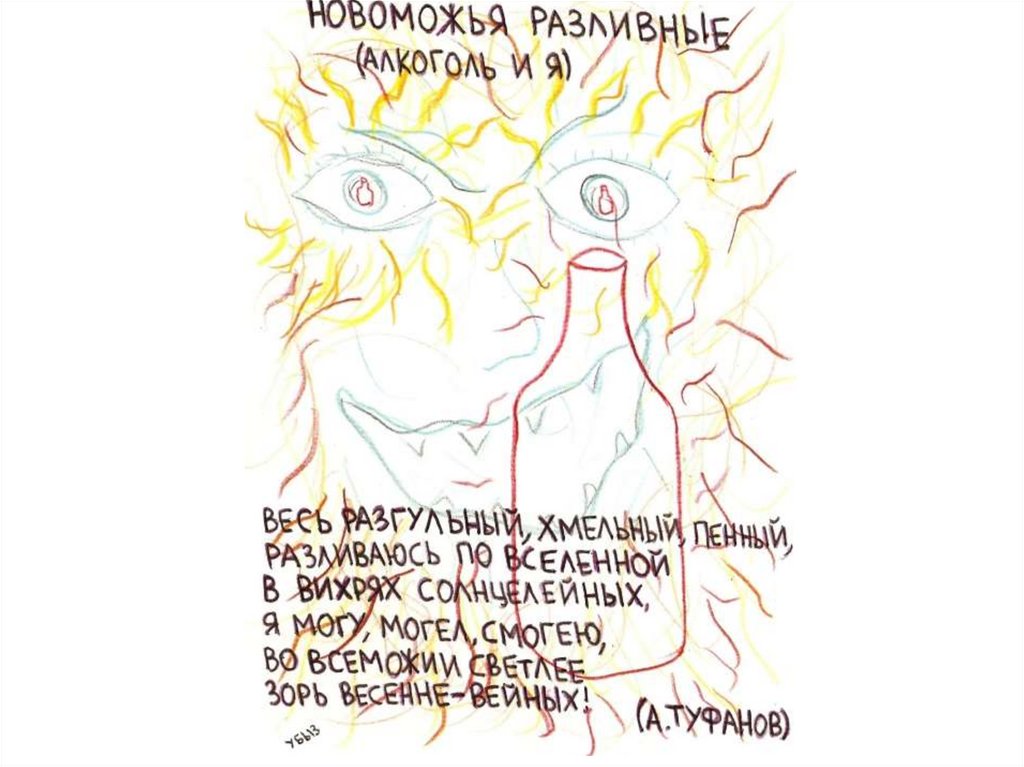 НОВОМОЖЬЯ РАЗЛИВНЫЕ
(АЛКОГОЛЬ И Я)
ВЕСЬ РАЗГУЛЬНЫЙ, ХМЕЛЬНЫЙ, ПЕННЫЙ,
РАЗЛИВАЮСЬ ПО ВСЕЛЕННОЙ
В ВИХРЯХ СОЛНЦЕЛЕЙНЫХ,
Я МОГУ, МОГЕЛ, СМОГЕЮ,
ВО ВСЕМОЖИИ СВЕТЛЕЕ
ЗОРЬ ВЕСЕННЕ-ВЕЙНЫХ!
(А.ТУФАНОВ)
УБЫЗ